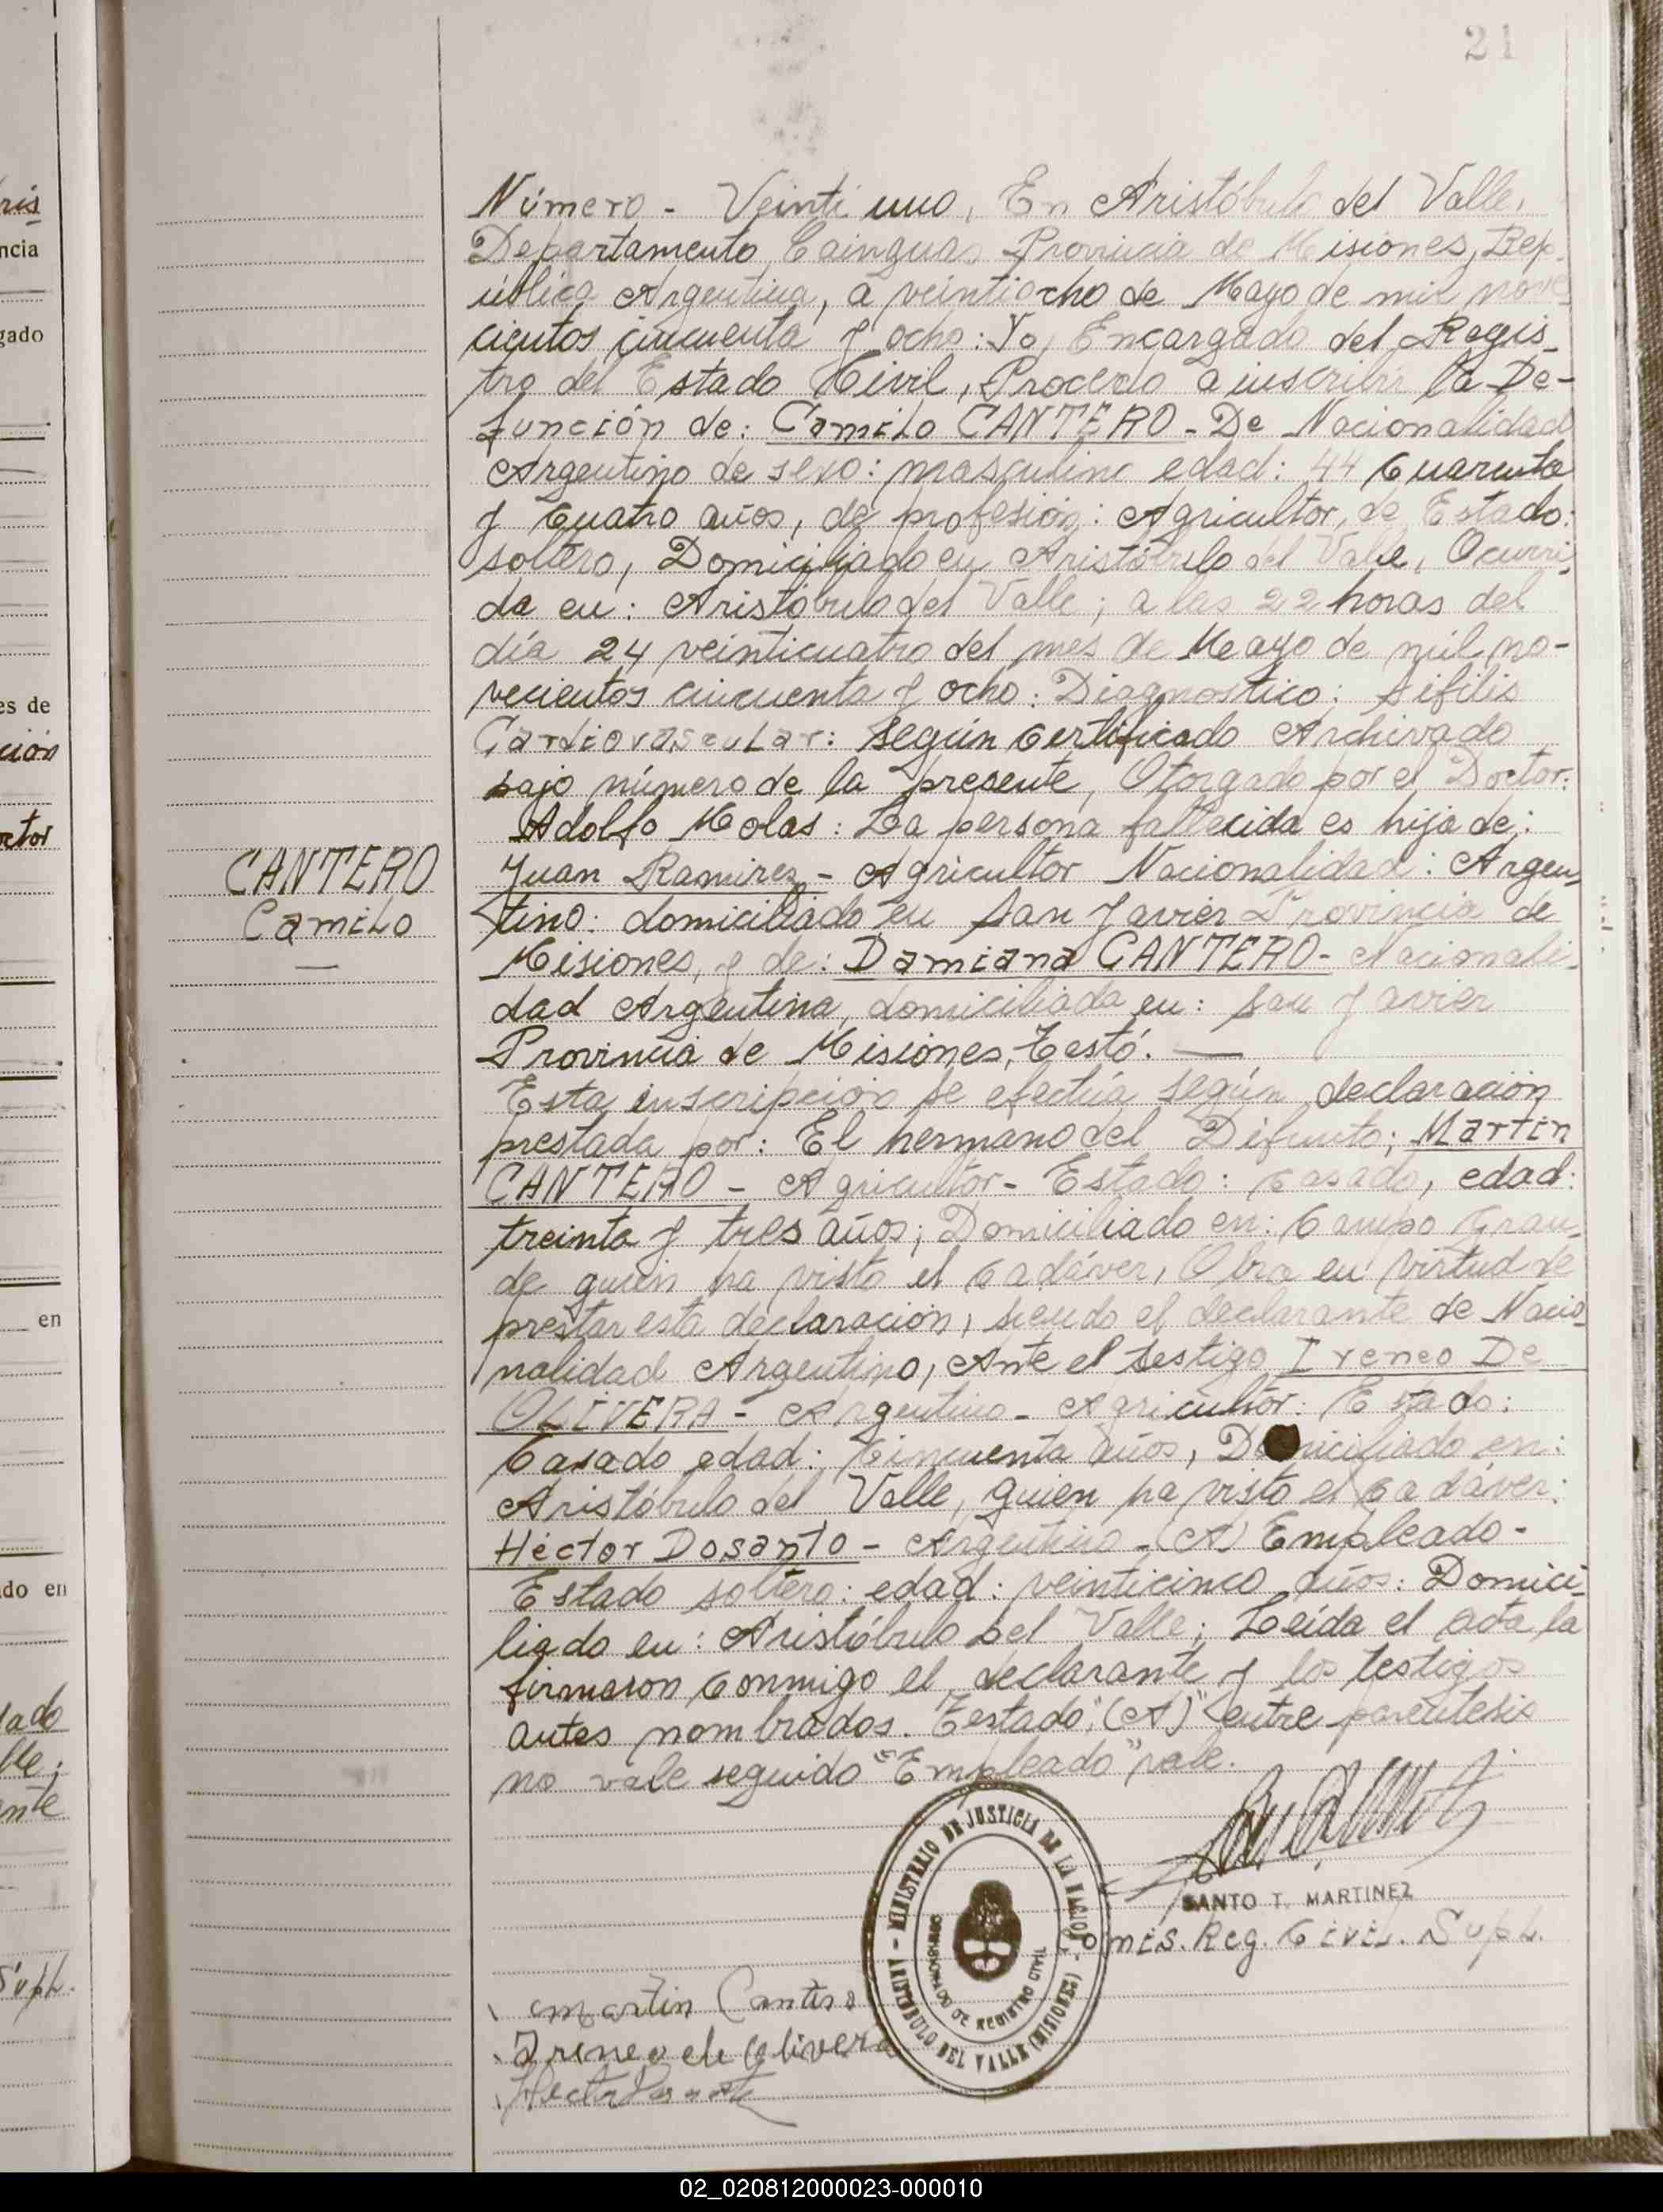 21
Número - Veinti uno, En Aristóbulo del Valle,
Departamento Cainguas Provincia de Misiones, Rep-
ública Argentina, a veintiocho de Mayo de mil nove
cientos cincuenta y ocho: Yo, Encargado del Regis-
tro del Estado Civil, Procedo a inscribir la De-
función de: Camilo CANTERO - De Nacionalidad
Argentino de sexo: masculino edad: 44 Cuarenta
y Cuatro años, de profesión: Agricultor, de Estado:
soltero, Domiciliado en Aristóbulo del Valle, Ocurri-
da en: Aristobulo del Valle; a las 22 horas del
día 24 veinticuatro del mes de Mayo de mil no-
vecientos cincuenta y ocho: Diagnostico: sifilis
Cardiovascular: según Certificado Archivado
bajo número de la presente, Otorgado por el Doctor:
Adolfo Molas: La persona fallecida es hija de:
Juan Ramirez - Agricultor Nacionalidad: Argen-
tino: domiciliado en San Javier Provincia de
Misiones, y de: Damiana CANTERO - Nacionali-
dad Argentina, domiciliada en: San Javier
Provincia de Misiones, Testó. —
Esta inscripción se efectúa según declaración
prestada por: El hermano del Difunto; Martin
CANTERO - Agricultor - Estado: Casado, edad:
treinta y tres años; Domiciliado en: Campo Gran-
de quien ha visto el Cadáver, Obra en virtud de
prestar esta declaración, siendo el declarante de Nacio-
nalidad Argentino, Ante el testigo Ireneo De
OLIVERA - Argentino - Agricultor: Estado:
Casado edad: Cincuenta años, Domiciliado en:
Aristóbulo del Valle, quien ha visto el Cadáver:
Héctor Dosanto - Argentino - (A) Empleado -
Estado soltero: edad: veinticinco años: Domici-
liado en: Aristóbulo del Valle; Leída el acta la
firmaron Conmigo el declarante y los testigos
antes nombrados. Testado: "(A)" entre paréntesis
no vale seguido "Empleado" vale.
CANTERO
Camilo
SANTO T. MARTINEZ
Omis. Reg. Civil. Supl.
MINISTERIO DE JUSTICIA DE LA NACION
ARISTOBULO DEL VALLE (MISIONES)
DE REGISTRO CIVIL
Martin Cantero
Ireneo de Olivera
ris
ncia
gado
es de
ción
octor
en
do en
tado
lle;
ante
Supl.
02_020812000023-000010